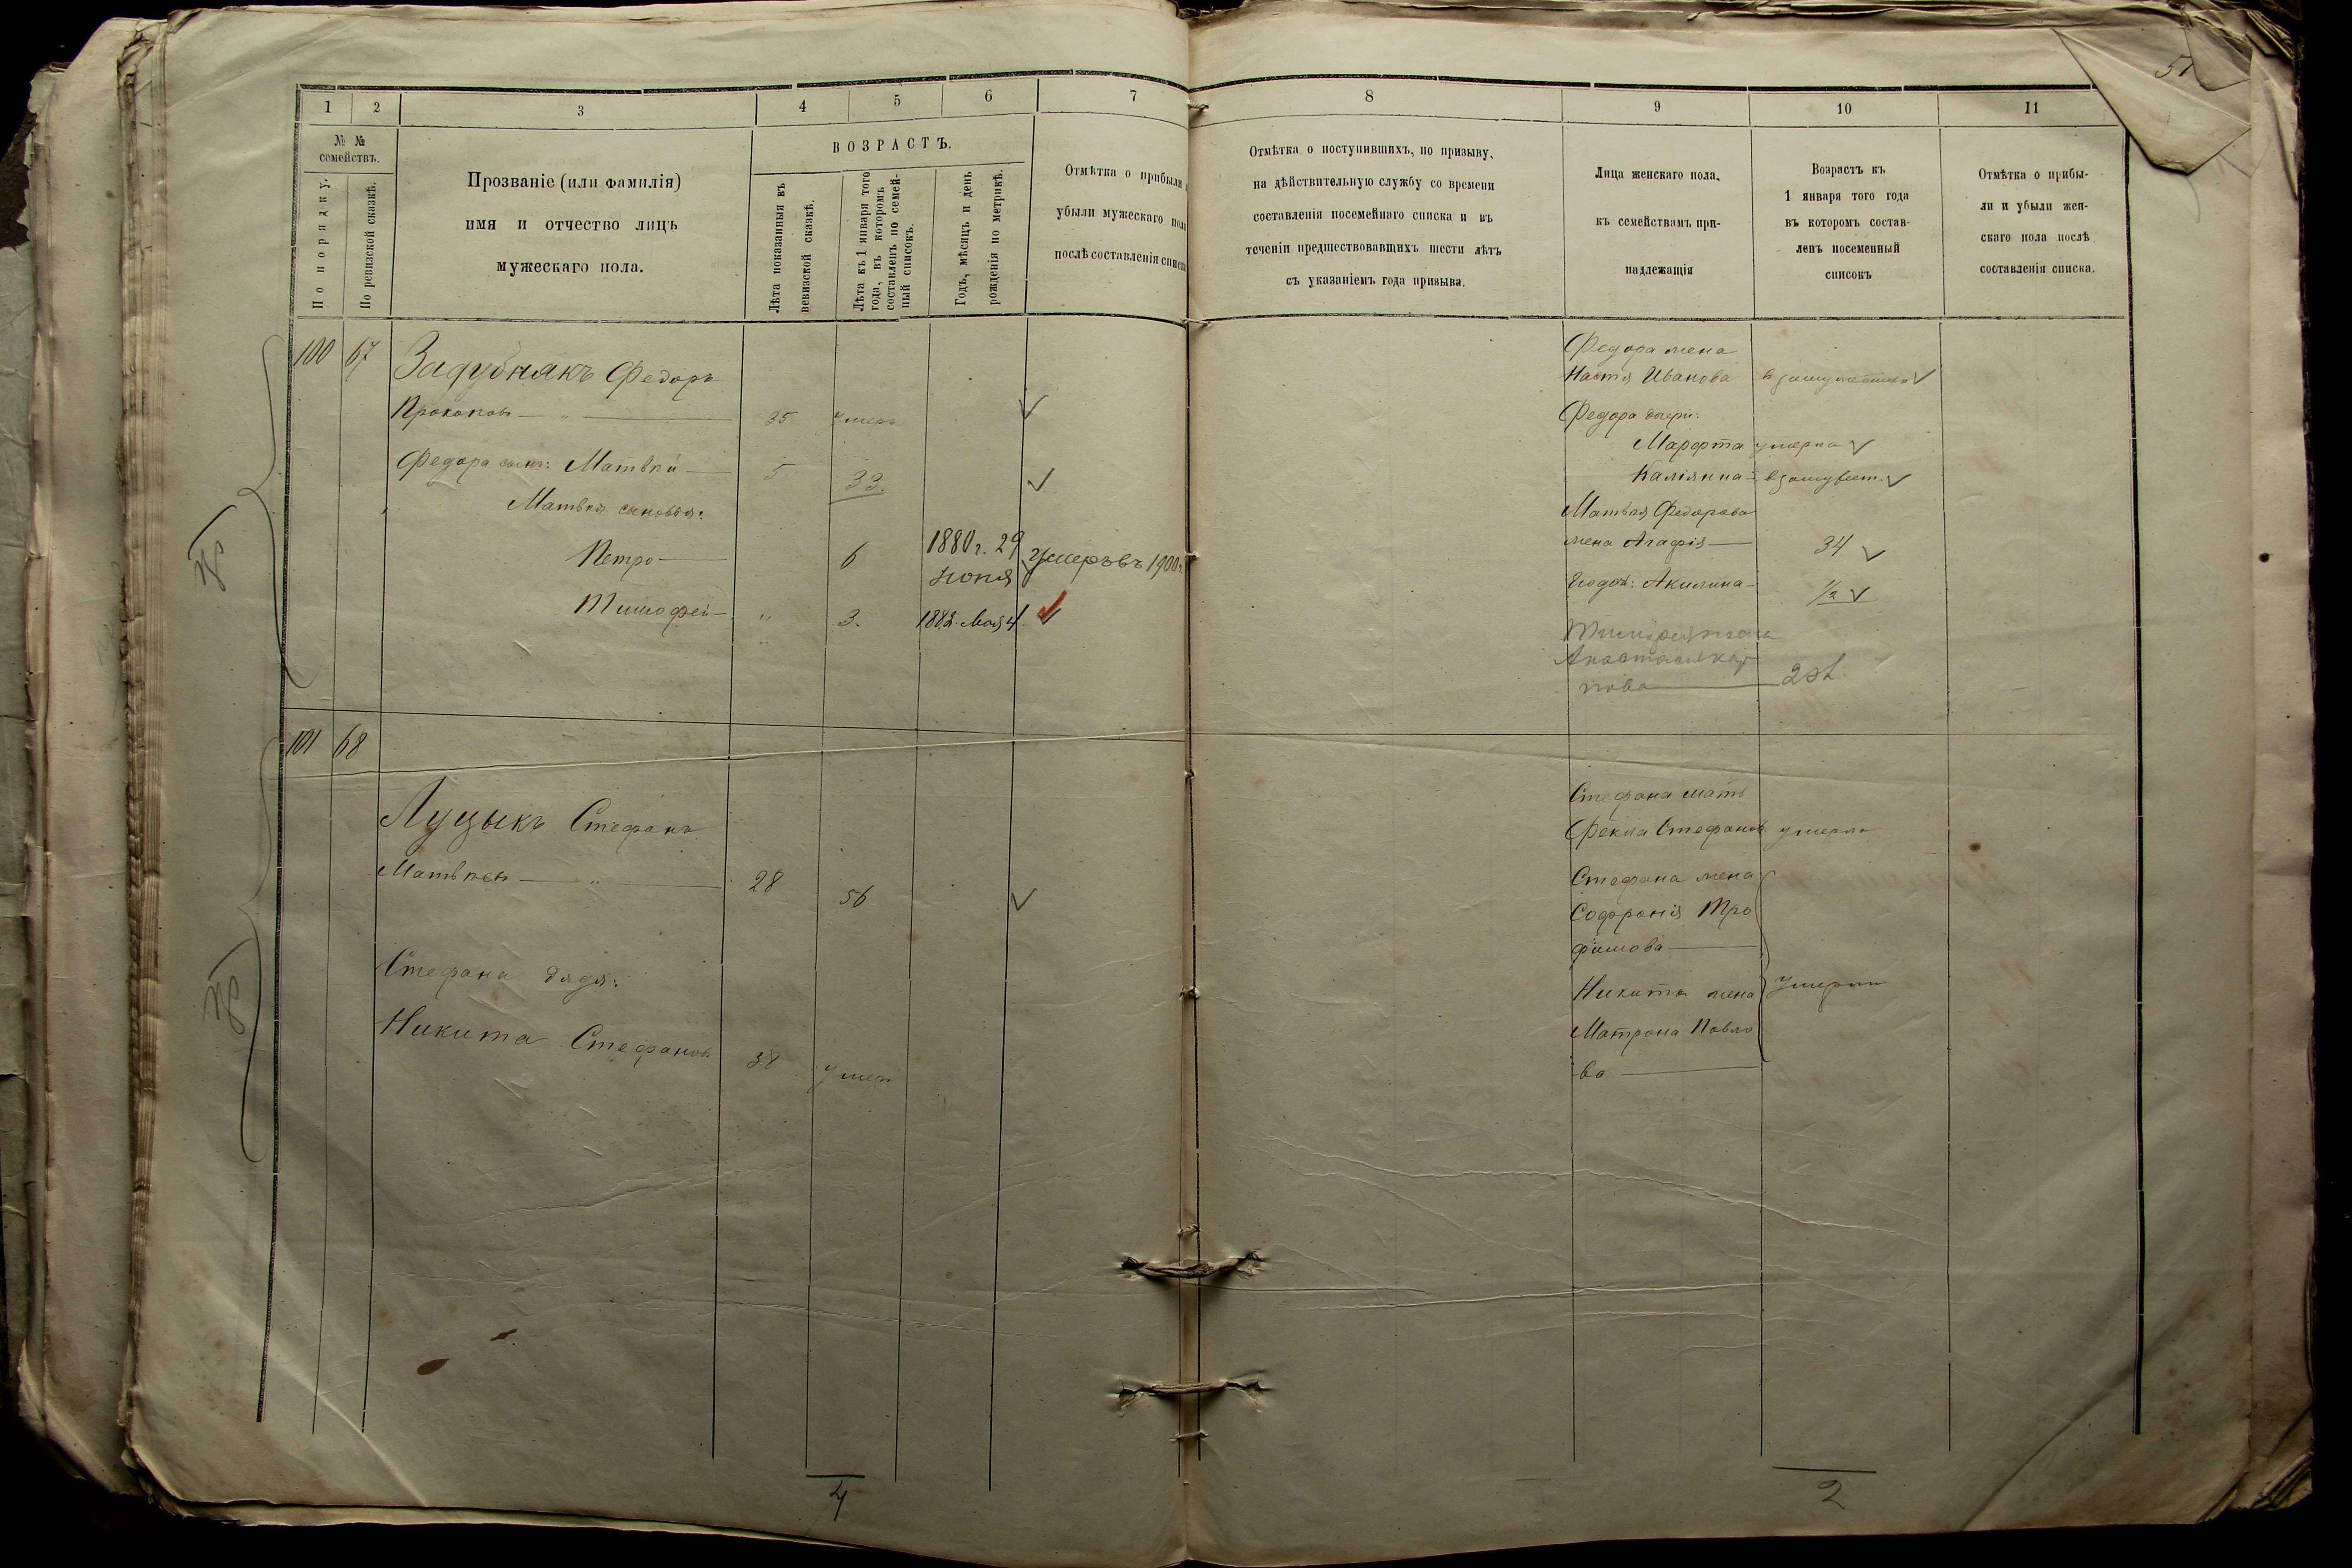 51
1 2 3 4 5 6 7
№ №
семействъ.
По порядку.
По ревизской сказкѣ.
Прозваніе (или фамилія)
имя и отчество лицъ
мужескаго пола.
ВОЗРАСТЪ.
Лѣта показанныя въ
ревизской сказкѣ.
Лѣта къ 1 января того
года, въ которомъ
составленъ по семей-
ный списокъ.
Годъ, мѣсяцъ и день
рожденія по метрикѣ.
Отмѣтка о прибыли
убыли мужескаго пола
послѣ составленія списка
100 67 Задубнякъ Федоръ
Прокоповъ — „ — 35 умеръ
Федора сынъ: Матвѣй — 5 33.
Матвѣя сыновья:
Петро — 6 1880 г. 29 умеръ въ 1900 г.
Іюня
Тимофей — „ 3. 1882. Мая 4.
101 68
Луцыкъ Стефанъ
Матвѣевъ — „ — 28 56
Стефана дядя:
Никита Стефановъ 38 умеръ
4
8 9 10 11
Отмѣтка о поступившихъ, по призыву,
на дѣйствительную службу со времени
составленія посемейнаго списка и въ
теченіи предшествовавшихъ шести лѣтъ
съ указаніемъ года призыва.
Лица женскаго пола,
къ семействамъ при-
надлежащія
Возрастъ къ
1 января того года
въ которомъ состав-
ленъ посеменный
списокъ
Отмѣтка о прибы-
ли и убыли жен-
скаго пола послѣ
составленія списка.
Федора жена
Настя Иванова въ замужествѣ
Федора дочери:
Марфта умерла
Каліянна — въ замужест.
Матвѣя Федорова
жена Агафія — 34
Его доч: Акилина — 1/2
Тимофея жена
Анастасія Кар
пова —
Стефана мать
Фекла Стефанов. умерла
Стефана жена
Софронія Тро
фимова —
Никиты жена умерли
Матрона Павло
ва —
2